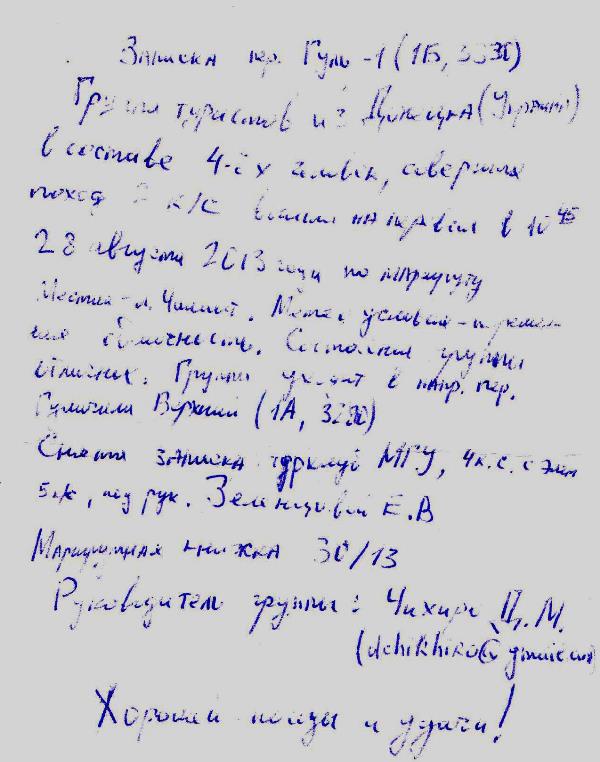 Записка пер. Гуль-1 (1Б, 3330)
Группа туристов из Донецка (Украина)
в составе 4-ёх человек, совершая
поход 2 к/с вышли на перевал в 10 45
28 августа 2013 года по маршруту
Местиа - л. Чалаат. Метео условия - перемен-
ная облачность. Состояние группы
отличное. Группа уходит в напр. пер.
Гуличала Верхний (1А, 3220)
Снята записка турклуб МГУ, 4 к.с. с эл-ми
5 к/с, под рук. Зеленцовой Е.В
Маршрутная книжка 30/13
Руководитель группы: Чихиро Д. М.
(dchikhiro@gmail.com)
Хорошей погоды и удачи!